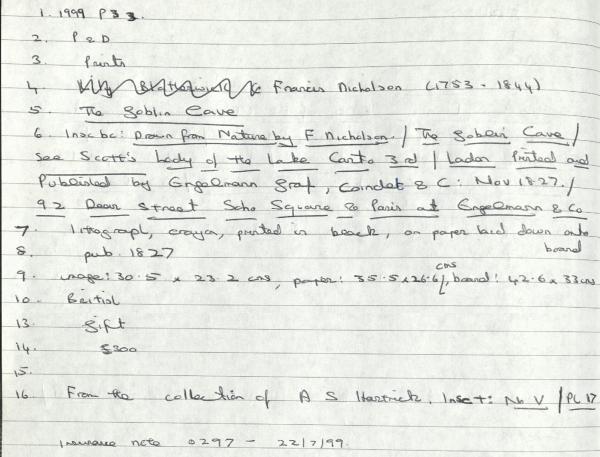 1. 1999 P33.
2. P & D
3. Prints
4. Francis Nicholson (1753 - 1844)
5. The Goblin Cave
6. Insc bc: Drawn from Nature by F Nicholson. / The Goblin Cave /
See Scott's Lady of the Lake Canto 3rd / Ladon Printed and
Published by Engelmann Graf, Coindet & C: Nov 1827. /
92 Dean Street Soho Square & Paris at Engelmann & Co
7. litograph, crayon, printed in black, on paper laid down onto
board
8. pub. 1827
9. image: 30.5 x 23.2 cms, paper: 35.5 x 26.6 cms, board: 42.6 x 33 cms
10. British
13. gift
14. $300
15.
16. From the collection of A S Hartrick. Insc t: No V / PL 17
Insurance note 0297 - 22/7/99.